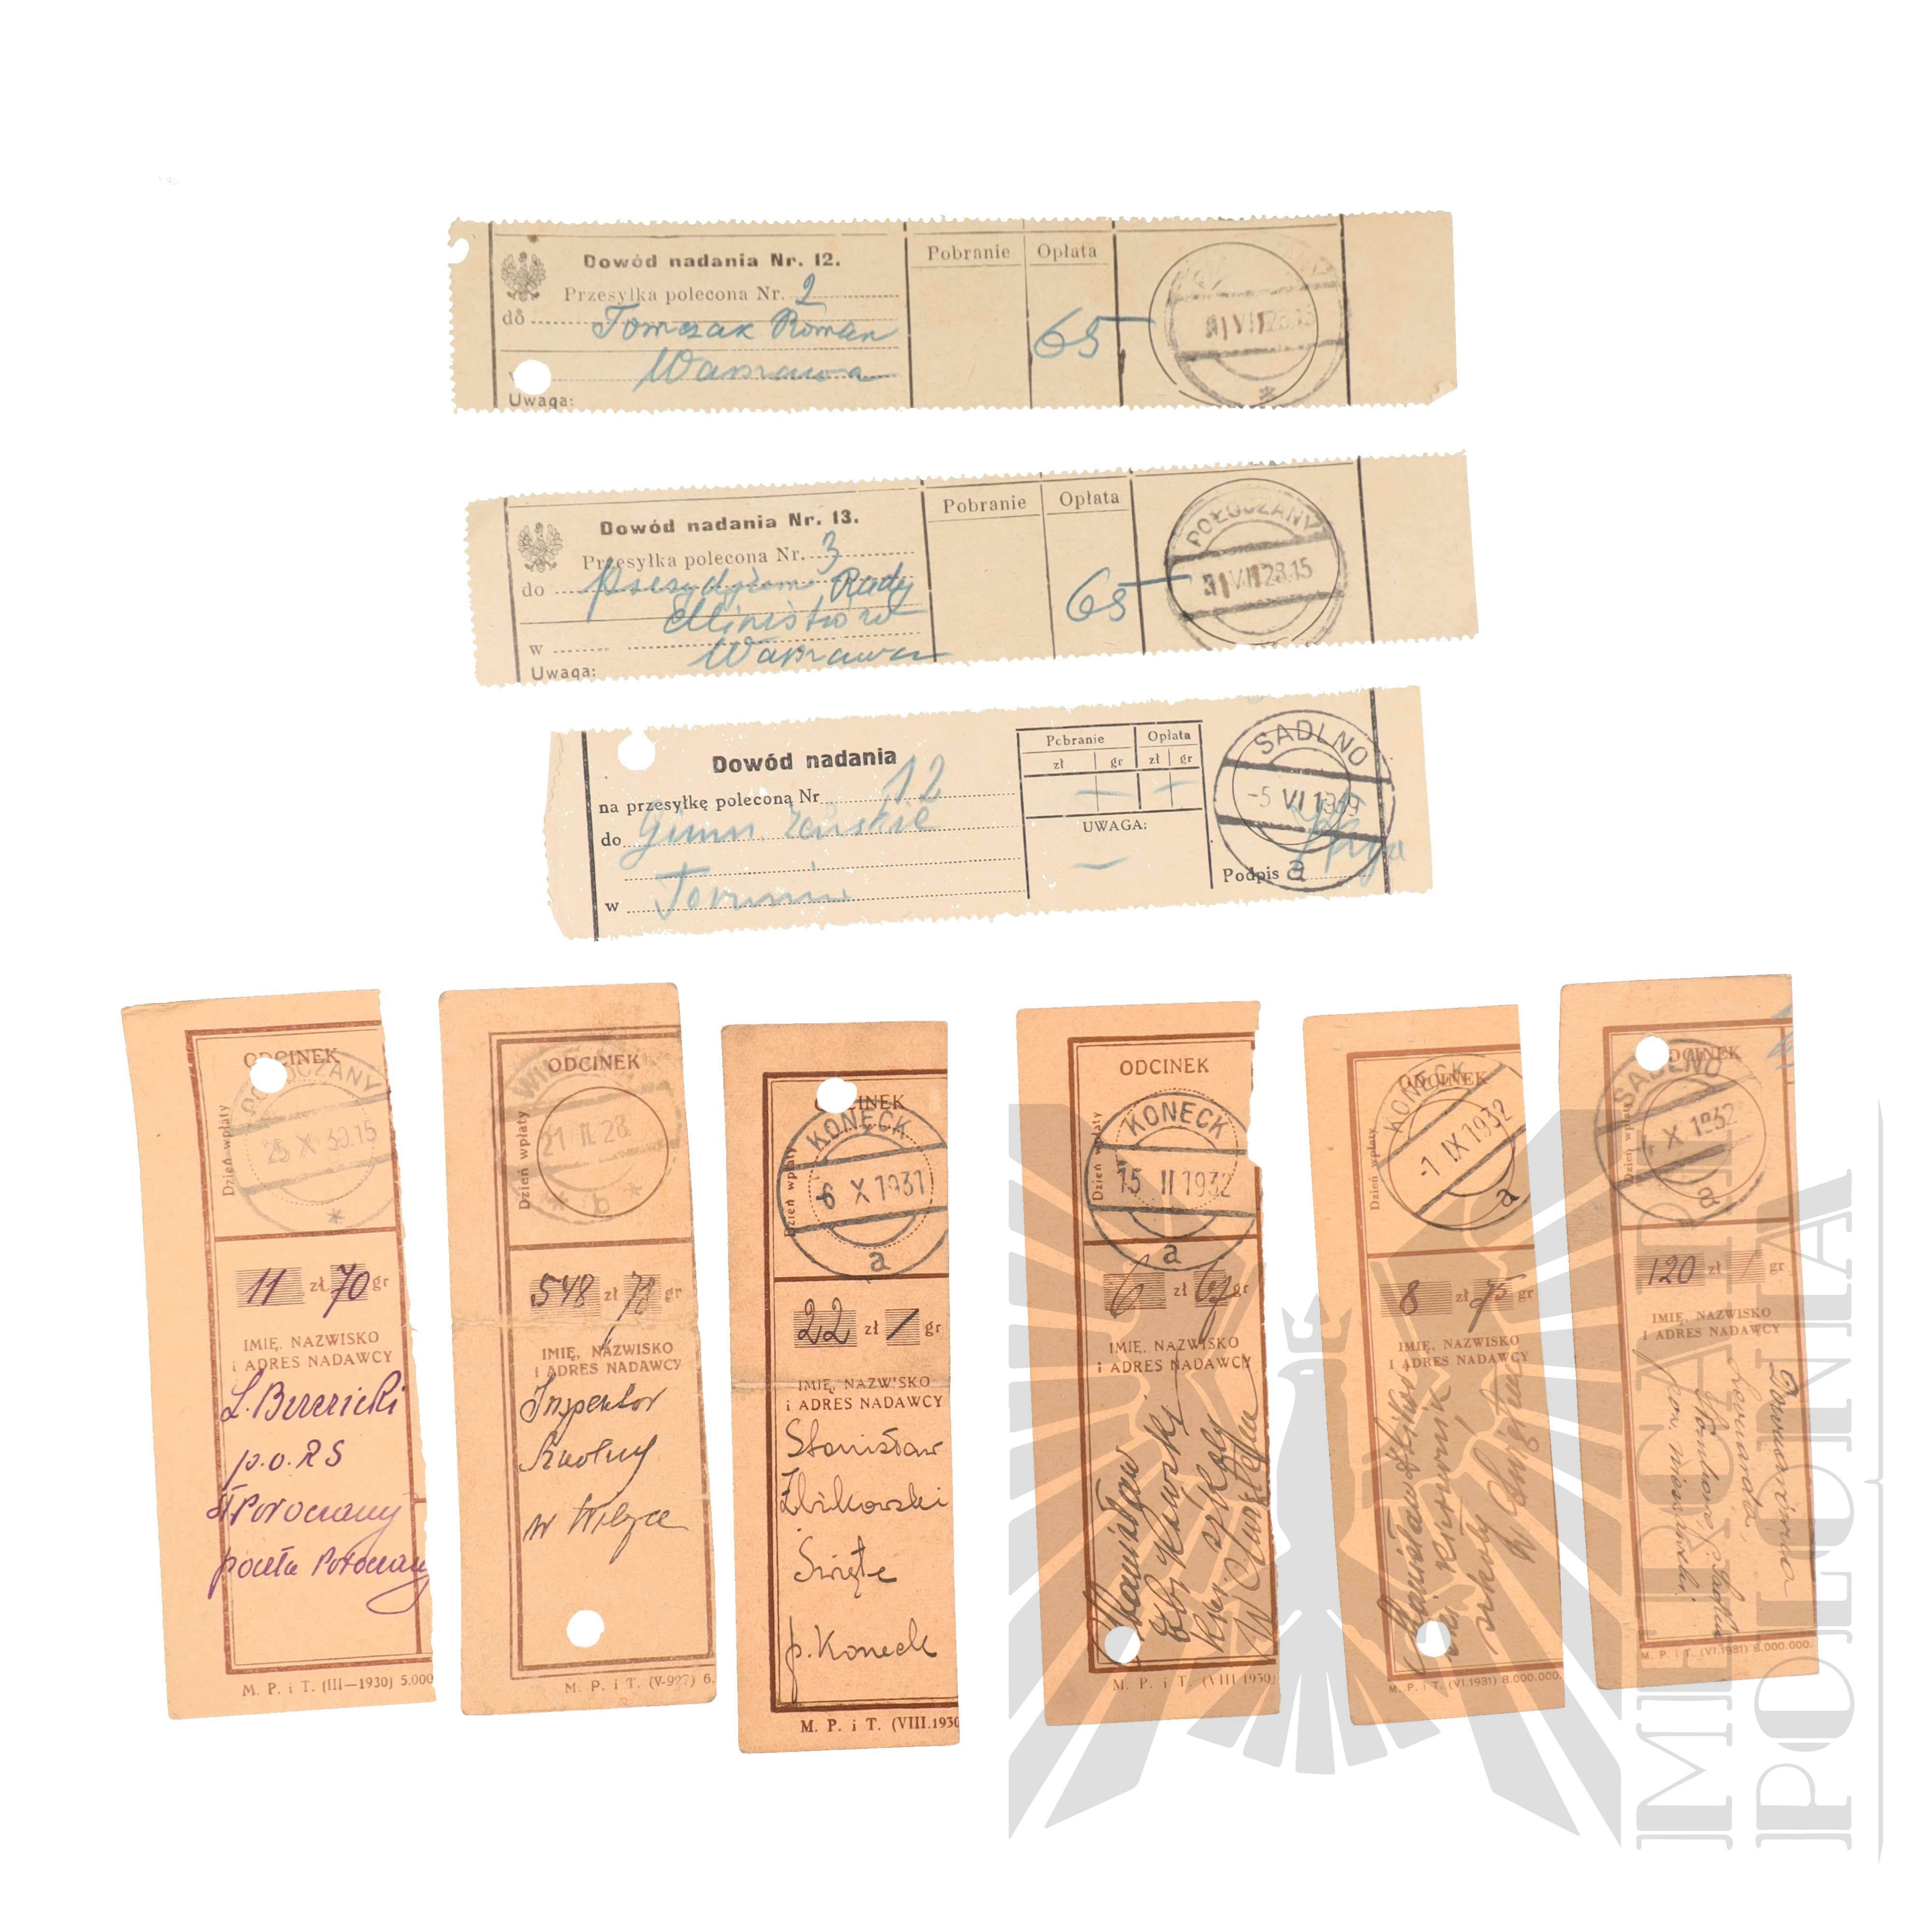 Dowód nadania Nr. 12.
Przesyłka polecona Nr. 2
do Tomczak Roman
Warszawa
Uwaga:
Pobranie
Opłata
65
VII 28.15
Dowód nadania Nr. 13.
Przesyłka polecona Nr. 3
do Prezydjum Rady
Ministrów
w Warszawa
Uwaga:
Pobranie
Opłata
65
POŁOCZANY
31 VII 28.15
Dowód nadania
na przesyłkę poleconą Nr 12
do Gimn. Żeńskie
w Toruniu
Pobranie
Opłata
zł gr zł gr
UWAGA:
Podpis
SADLNO
-5 VI 1939
a
ODCINEK
POŁOCZANY
Dzień wpłaty
25 X 30.15
11 zł 70 gr
IMIĘ, NAZWISKO
i ADRES NADAWCY
p.o. RS
poczta
M. P. i T. (III—1930) 5.000
ODCINEK
Dzień wpłaty
21 II 28
b
548 zł 78 gr
IMIĘ, NAZWISKO
i ADRES NADAWCY
Inspektor
Szkolny
w Wilejce
M. P. i T. (V-927) 6.
ODCINEK
KONECK
Dzień wpłaty
6 X 1931
a
22 zł / gr
IMIĘ, NAZWISKO
i ADRES NADAWCY
Stanisław
Zbikowski
Święte
p. Koneck
M. P. i T. (VIII.1930
ODCINEK
KONECK
Dzień wpłaty
15 II 1932
a
6 zł 67 gr
IMIĘ, NAZWISKO
i ADRES NADAWCY
Stanisław
Zbikowski
kier. szkoły
M. P. i T. (VIII 1930)
ODCINEK
KONECK
Dzień wpłaty
-1 IX 1932
a
8 zł 75 gr
IMIĘ, NAZWISKO
i ADRES NADAWCY
kierownik
szkoły
M. P. i T. (VI.1931) 8.000.000.
ODCINEK
SADLNO
Dzień wpłaty
X 1932
a
120 zł / gr
IMIĘ, NAZWISKO
i ADRES NADAWCY
M. P. i T. (VI.1931) 8.000.000.
MERCARI
POLONIA